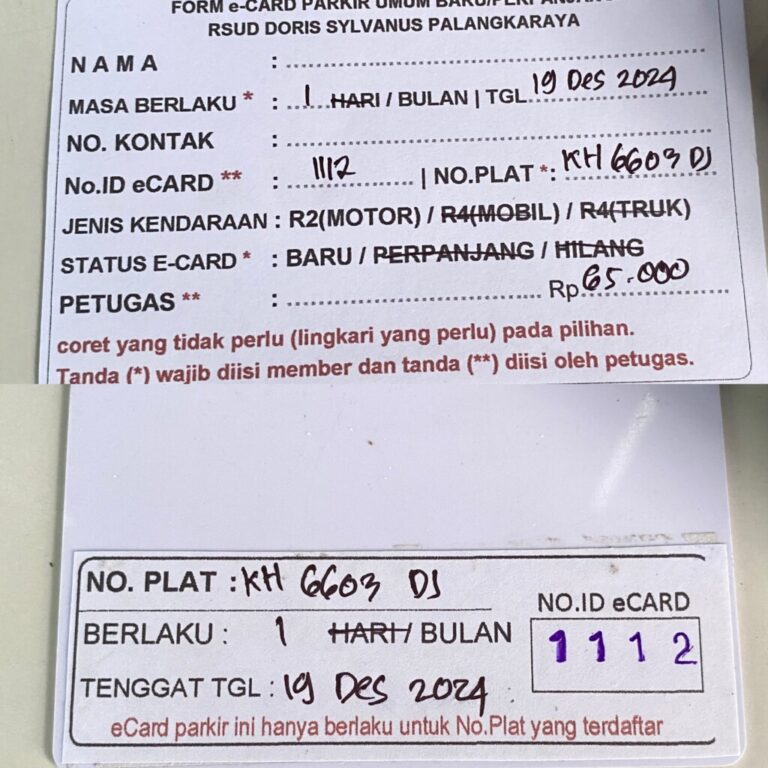 FORM e-CARD PARKIR UMUM BARU/PERPANJANG
RSUD DORIS SYLVANUS PALANGKARAYA
NAMA :
MASA BERLAKU * : 1 HARI / BULAN | TGL 19 Des 2024
NO. KONTAK :
No.ID eCARD ** : 1112 | NO.PLAT *: KH 6603 DJ
JENIS KENDARAAN : R2(MOTOR) / R4(MOBIL) / R4(TRUK)
STATUS E-CARD * : BARU / PERPANJANG / HILANG
PETUGAS ** : Rp 65.000
coret yang tidak perlu (lingkari yang perlu) pada pilihan.
Tanda (*) wajib diisi member dan tanda (**) diisi oleh petugas.
NO. PLAT : KH 6603 DJ
BERLAKU : 1 HARI / BULAN
TENGGAT TGL : 19 Des 2024
NO.ID eCARD
1112
eCard parkir ini hanya berlaku untuk No.Plat yang terdaftar